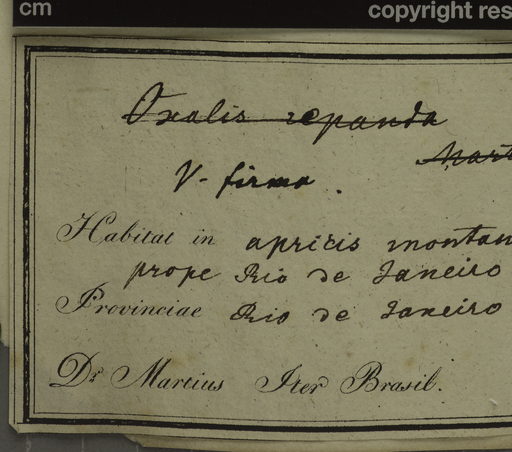 cm copyright res
Oxalis repanda
Mart
V- firma.
Habitat in apricis montan
prope Rio de Janeiro
Provinciae Rio de Janeiro
Dr. Martius Iter Brasil.